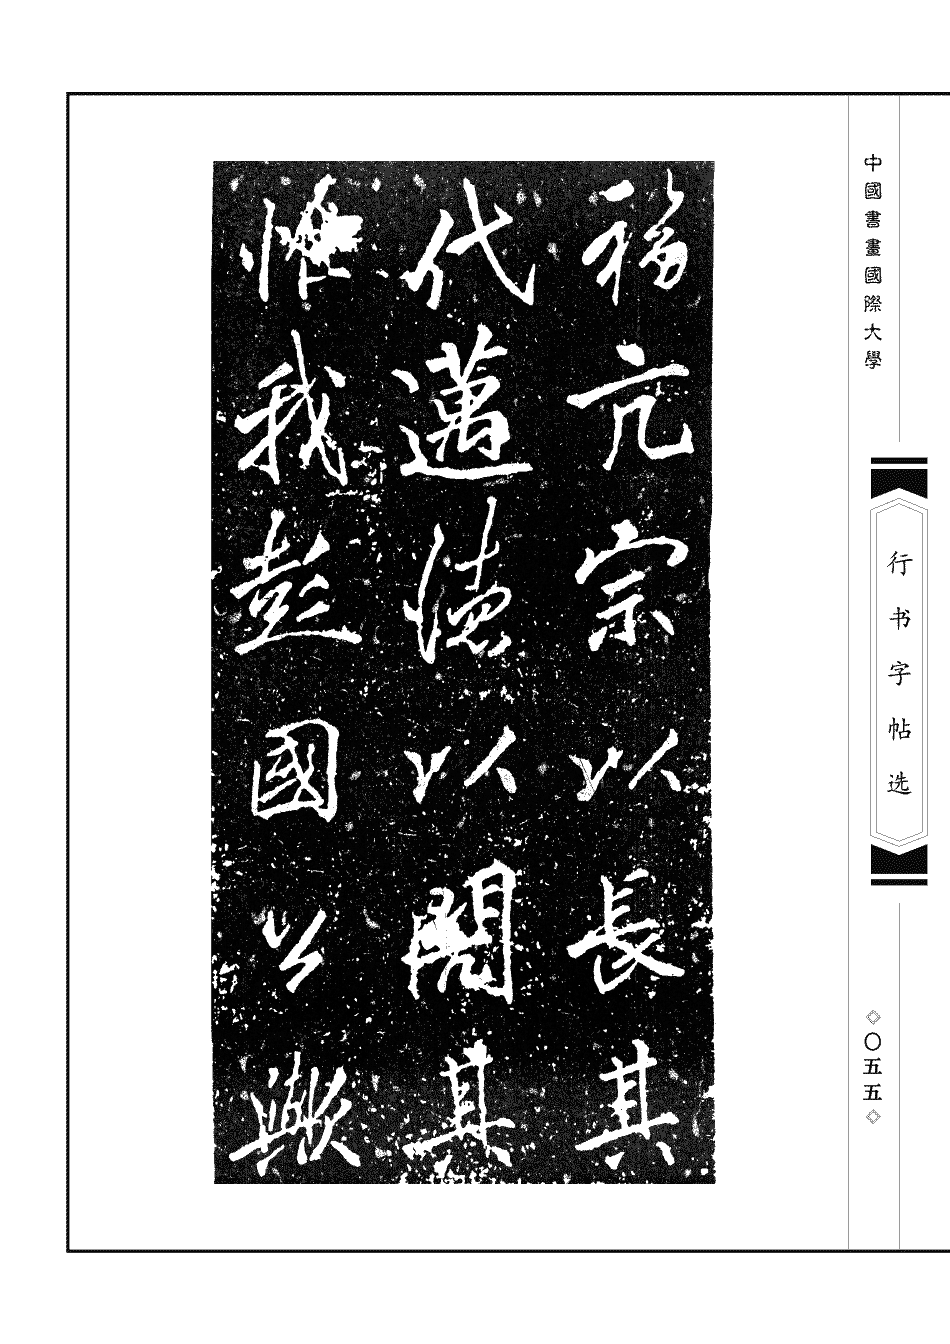 中國書畫國際大學
行书字帖选
〇五五
福亢宗以長其
代邁德以其
惟我彭國公歟